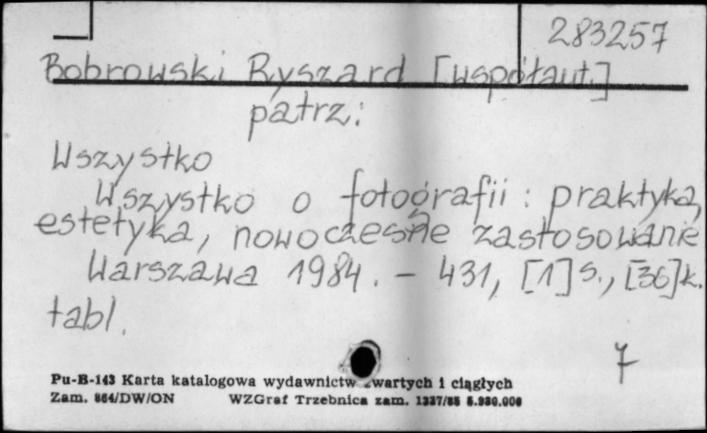 283257
Bobrowski Ryszard [współaut.]
patrz:
Wszystko
Wszystko o fotografii : praktyka,
estetyka, nowoczesne zastosowanie
Warszawa 1984. - 431, [1] s., [36] k.
tabl.
7
Pu-B-143 Karta katalogowa wydawnictw zwartych i ciągłych
Zam. 864/DW/ON WZGraf Trzebnica zam. 1337/85 5.980.000